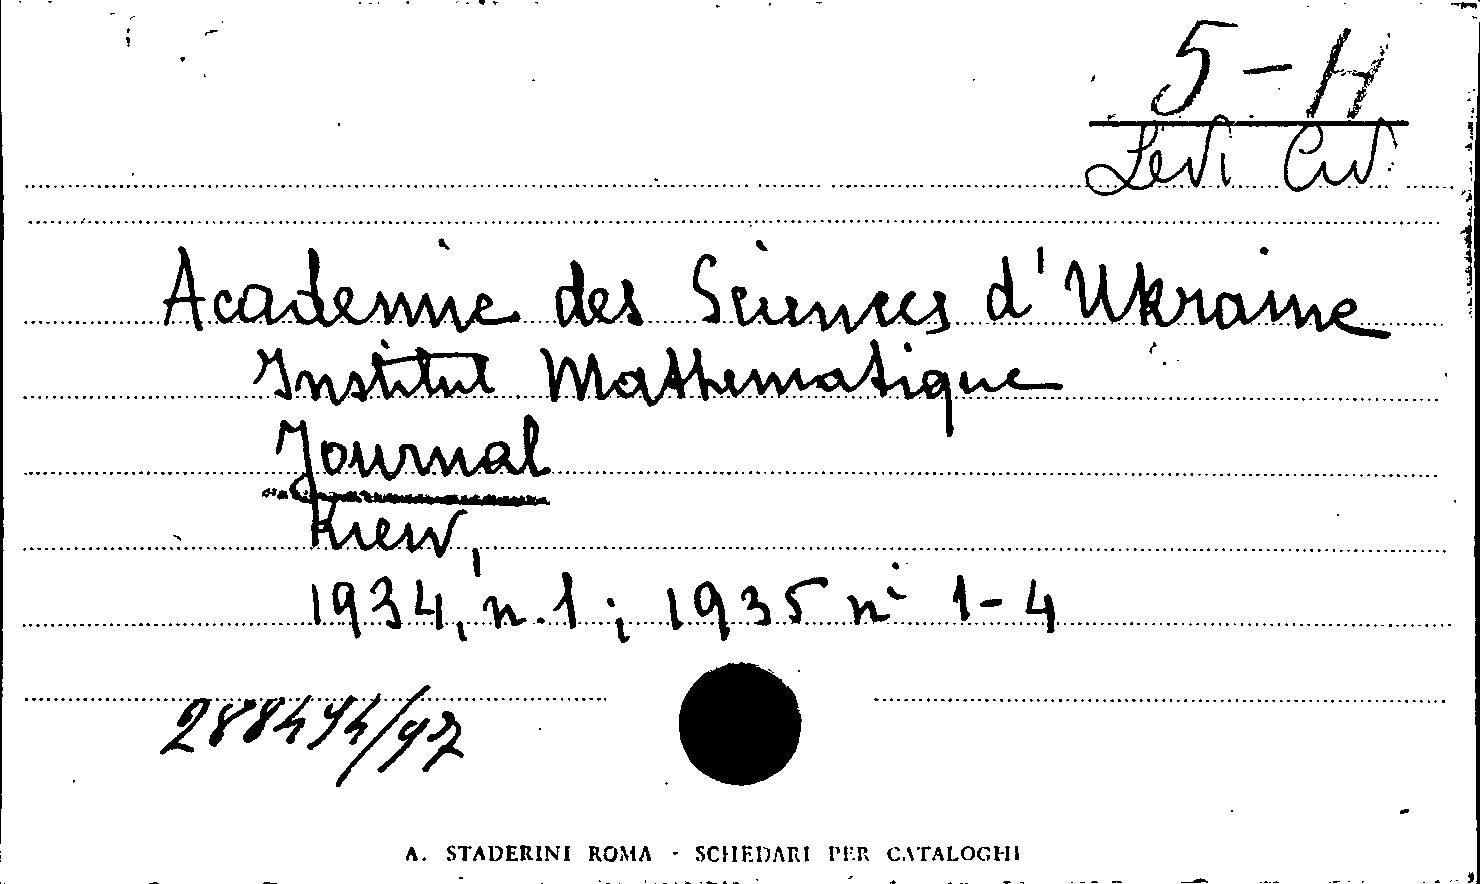 5-H
Levi Civ.
Academie des Sciences d'Ukraine
Institut Mathematique
Journal
Kiew,
1934, n.1; 1935 ni 1-4
288494/97
A. STADERINI ROMA - SCHEDARI PER CATALOGHI